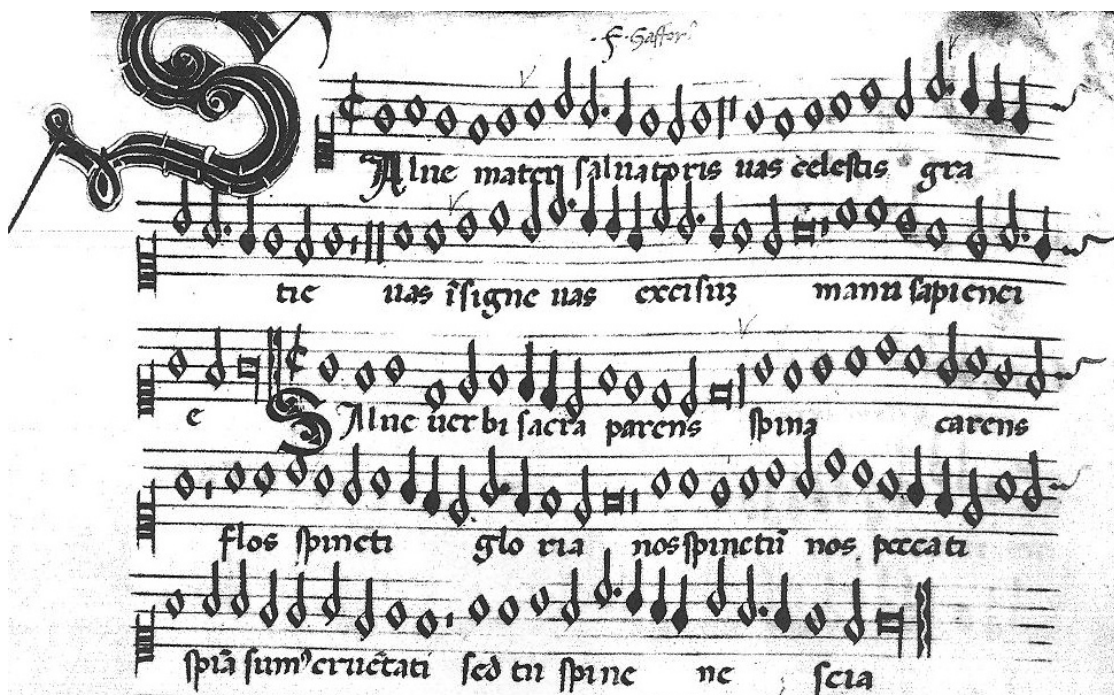 F. Gaffor
SAlue mater salvatoris uas celestis gra
tie uas īsigne uas excisuȝ manu sapienci
e SAlue uerbi sacra parens spina carens
flos spineti gloria nos spinetū nos peccati
spīa sumꝰ cruētati sed tu spine nescia